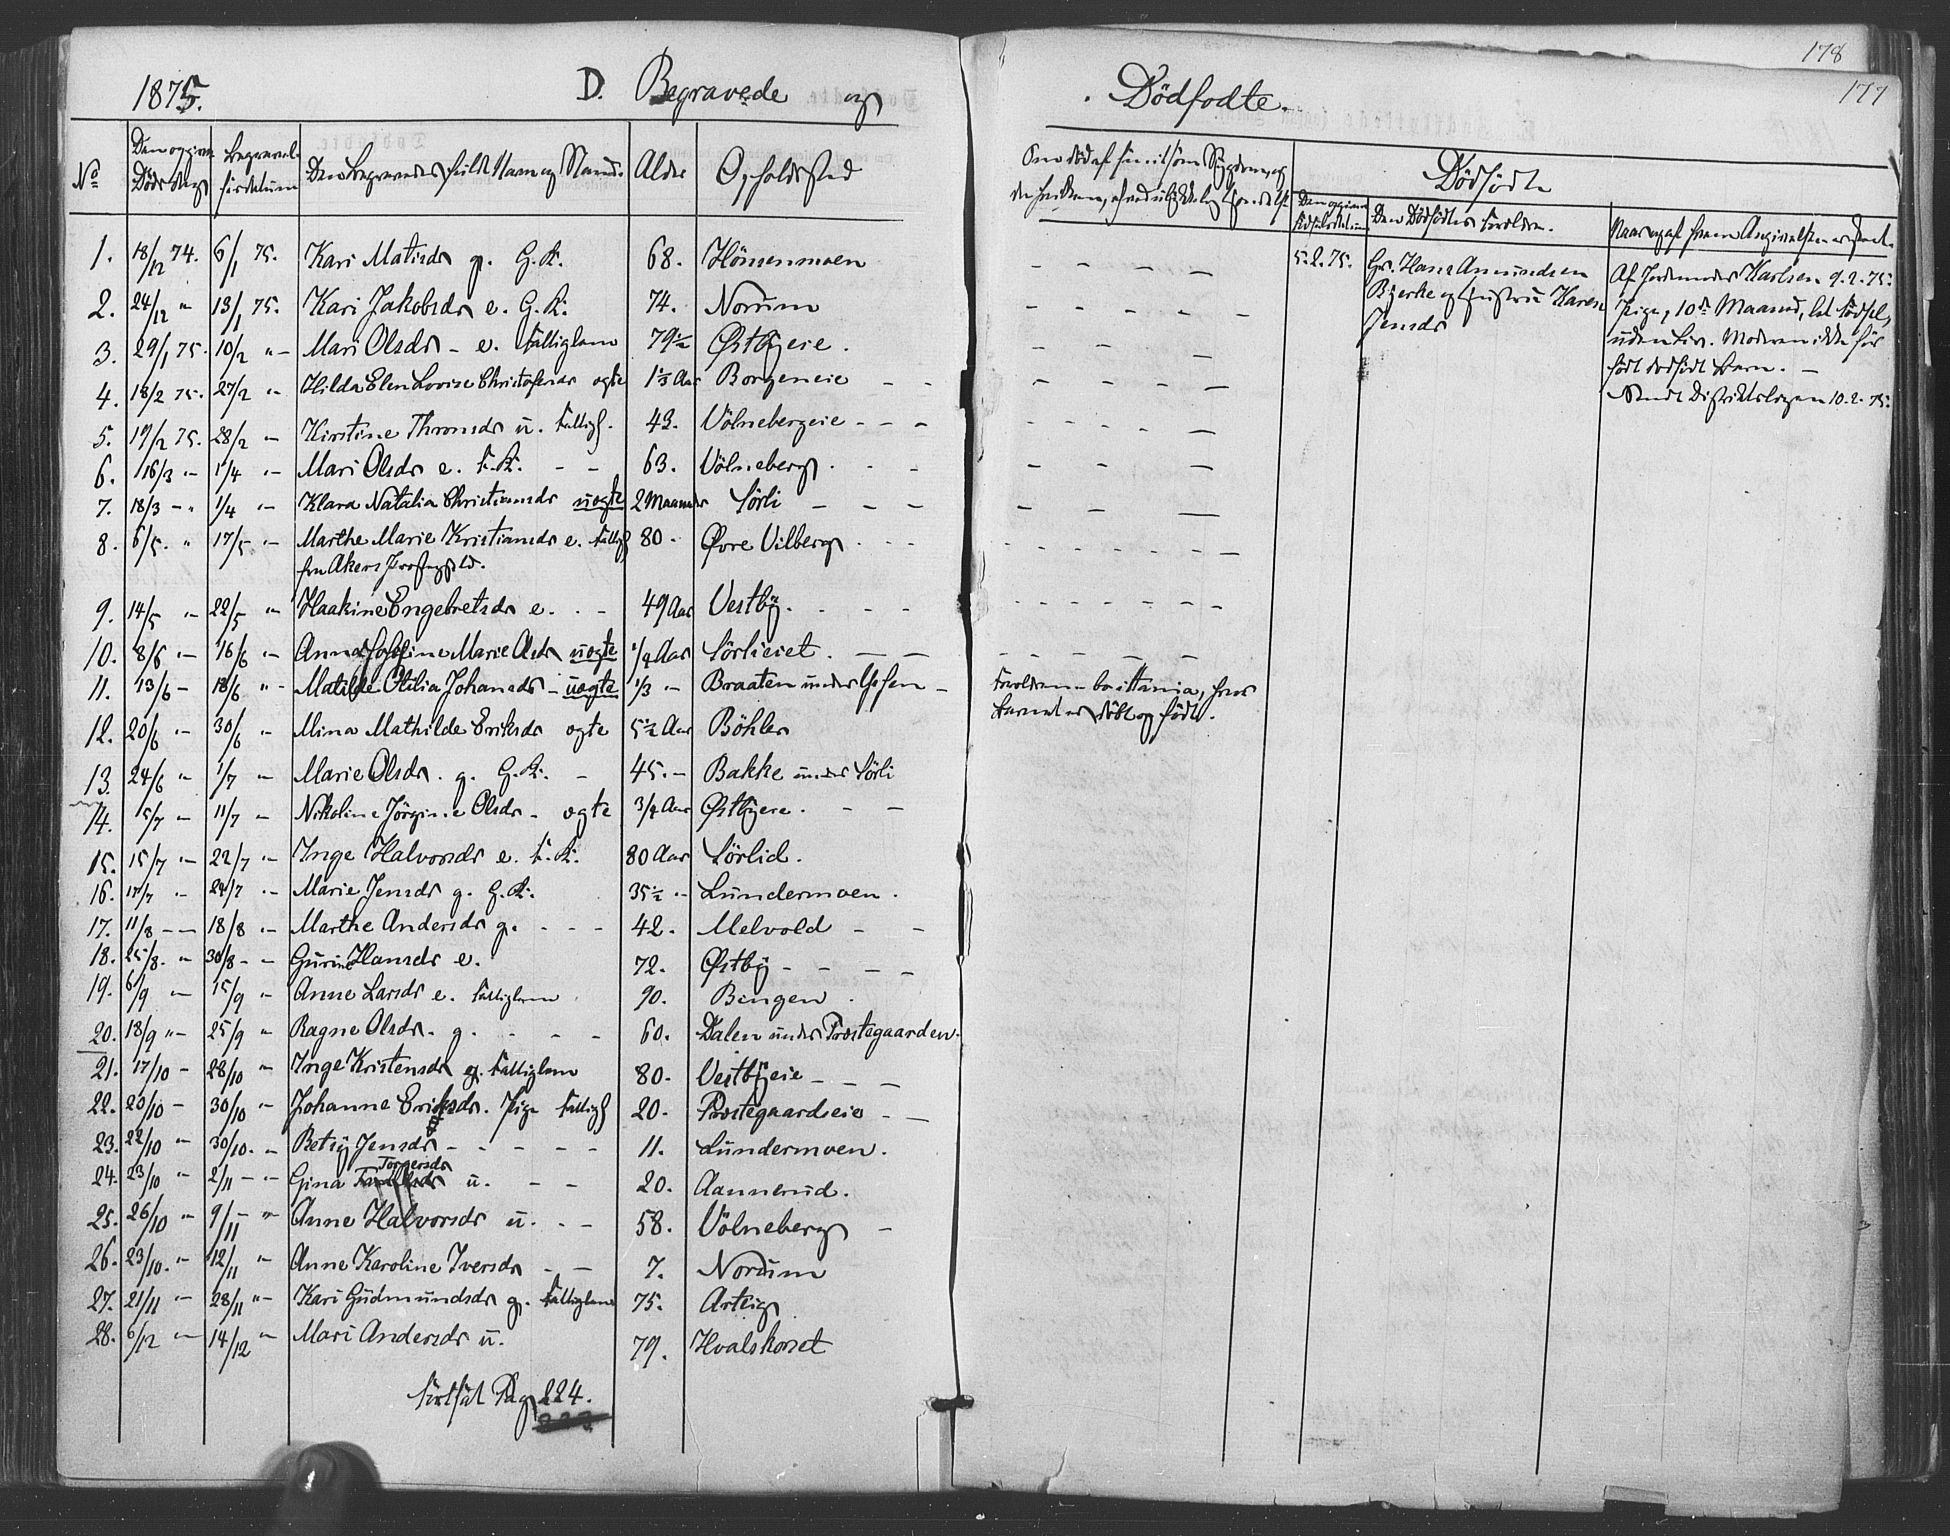 1875. D. Begravede og
No Den opgivne Dødsdag Begravelsesdatum Den Begravedes fulde Navn og Stand. Alder Opholdssted
1. 18/12 74. 6/1 75. Kari Matisdr g. G.K. 68. Hönsenmoen
2. 24/12 " 13/1 75. Kari Jakobsdr e. G.K. 74. Norum
3. 29/1 75. 10/2 " Mari Olsdr - e. Fattiglem 79½ Østbyeie.
4. 18/2 75. 27/2 " Hilda Elen Lovise Christofersdr ægte 1⅓ Aar Borgeneie
5. 19/2 75. 28/2 " Kirstine Thronsdr u. Fattigl. 43. Völnebergeie
6. 16/3 " 1/4 " Mari Olsdr e. F.K. 63. Völneberg.
7. 18/3 " 1/4 " Klara Natalia Christiansdr uægte 2 Maaneder Sörli
8. 6/5. " 17/5 " Marthe Marie Kristiansdr e. Fattigl 80. Øvre Vilberg
fra Akers Præstegjeld.
9. 14/5 " 22/5 " Haakine Engebretsdr e. 49 Aar Vestby.
10. 8/6 " 16/6 " Anna Josefine Marie Olsdr uægte 1/4 Aar Sörlieiet.
11. 13/6 - 18/6 " Matilde Otilia Johansdr - uægte 1/3 " Braaten under
12. 20/6 " 30/6 " Mina Mathilde Eriksdr ægte 5½ Aar Böhler
13. 24/6 " 1/7 " Marie Olsdr. g. G.K. 45. - Bakke under Sörli
14. 15/7 " 11/7 " Nikoline Jörgine Olsdr - ægte 3/4 Aar Østbyeie.
15. 15/7 " 22/7 " Inge Halvorsdr e. F.K. 80 Aar Sörlid.
16. 17/7 " 24/7 " Marie Jensdr g. G.K. 35½ " Lundermoen.
17. 11/8 - 18/8 " Marthe Andersdr g. 42. Melvold
18. 25/8. " 30/8 - Gurine Hansdr e. 72. Østby
19. 6/9 " 15/9 " Anne Larsdr e. Fattiglem 90. Bingen.
20. 18/9 " 25/9 " Ragne Olsdr. g. 60. Dalen under Præstegaarden.
21. 17/10 - 28/10 " Inge Kristensdr g. Fattiglem 80. Vestbyeie
22. 20/10 - 30/10 " Johanne Eriksdr. Pige Fattigl 20. Præstegaardseie
23. 22/10 " 30/10. " Betsy Jensdr 11. Lundermoen.
Torgersdr
24. 23/10 " 2/11 - Gina u. 20. Aannerud.
25. 26/10 " 9/11 " Anne Halvorsdr u. 58. Völneberg
26. 23/10. " 12/11 " Anne Karoline Iversdr 7. Norum
27. 21/11 " 28/11 " Kari Gudmundsdr g. Fattiglem 75. Arteig
28. 6/12 " 14/12 " Mari Andersdr u. 79. Hvalskorset
Fortsat Pag 224.
223
178
177
Dödfödte.
Om død af
Dödfödte
Den opgivne Fødselsdatum Den Dödfödtes Forældre. Naar og af hvem Angivelsen er skeet.
5.2.75. Gr. Hans Amundsen
Bjerke og Hustru Karen
Jensdr
Af Jordemoder Karlsen 9.2.75.
Pige, 10de Maaned, let Födsel,
uden Liv. Moderen ikke för
födt dödfödt Barn. -
Sendt Distriktslægen 10.2.75.
Forældrene bo i Xania, hvor
Barnet er döbt og födt.